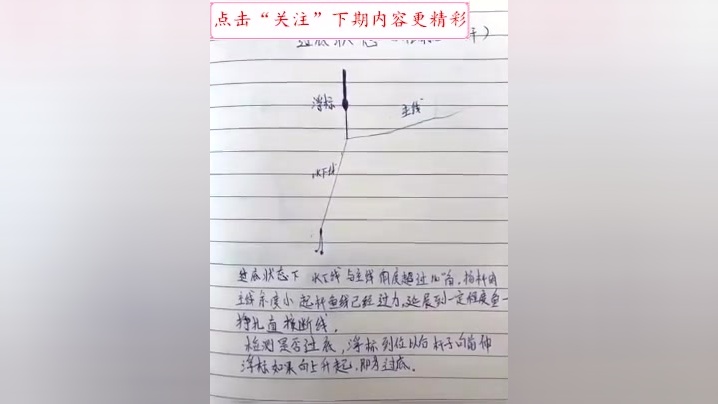 点击“关注”下期内容更精彩
过底状态
浮标
主线
水下线
过底状态下 水下线与主线角度超过 抬杆时
主线余度小 起杆鱼线已经过力,延展到一定程度鱼一
挣扎直接断线。
检测是否过底,浮标到位以后杆子向前伸
浮标如果向上升起,即为过底.